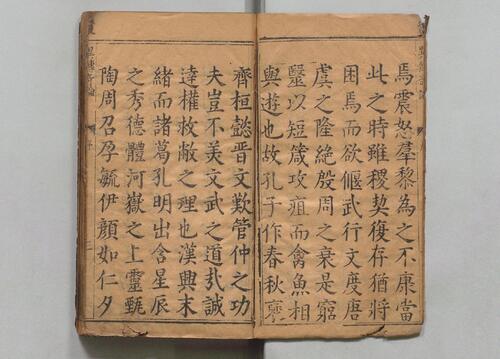 焉震怒羣黎為之不康當
此之時雖稷契復存猶將
困焉而欲偃武行文度唐
虞之隆絶殷周之衰是窮
毉以短箴攻疽而禽魚相
與遊也故孔子作春秋褒
齊桓懿晉文歎管仲之功
夫豈不美文武之道㢤誠
達權救敝之理也漢興末
緒而諸葛孔明出含星辰
之秀德體河嶽之上靈甄
陶周召孕毓伊顏如仁夕